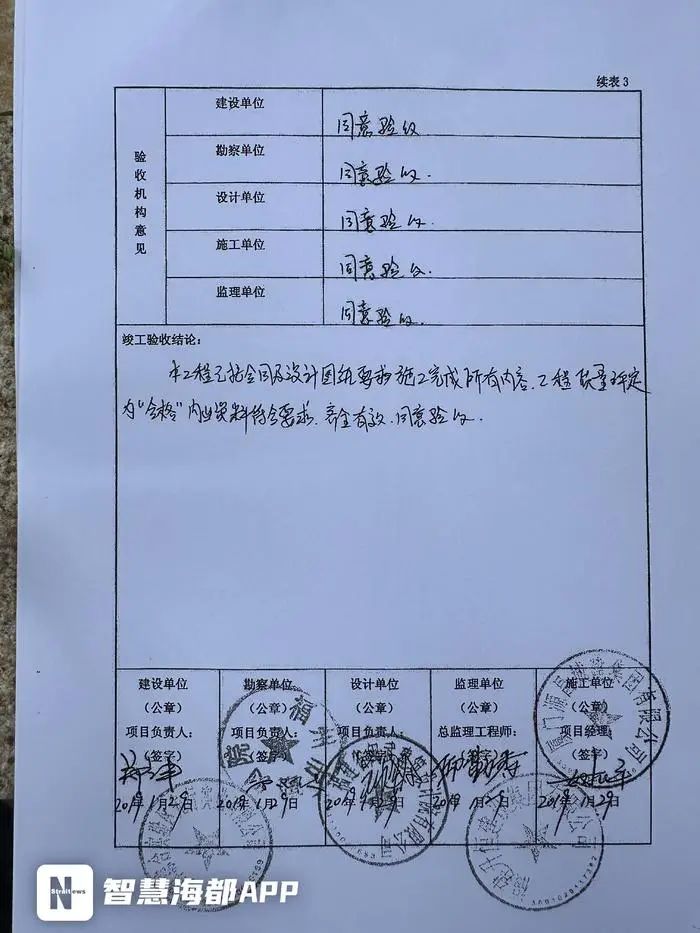 续表3
验收机构意见
建设单位 同意验收
勘察单位 同意验收.
设计单位 同意验收.
施工单位 同意验收.
监理单位 同意验收.
竣工验收结论:
本工程已按合同及设计图纸要求施工完成所有内容,工程质量评定
为“合格”内业资料符合要求.齐全有效.同意验收.
建设单位 勘察单位 设计单位 监理单位 施工单位
(公章) (公章) (公章) (公章) (公章)
项目负责人: 项目负责人: 项目负责人: 总监理工程师: 项目经理:
(签字) (签字) (签字) (签字)
2019 1月29日 2019 1月29日 2019 1月29日 2019 1月29日 2019 1月29日
N
智慧海都APP